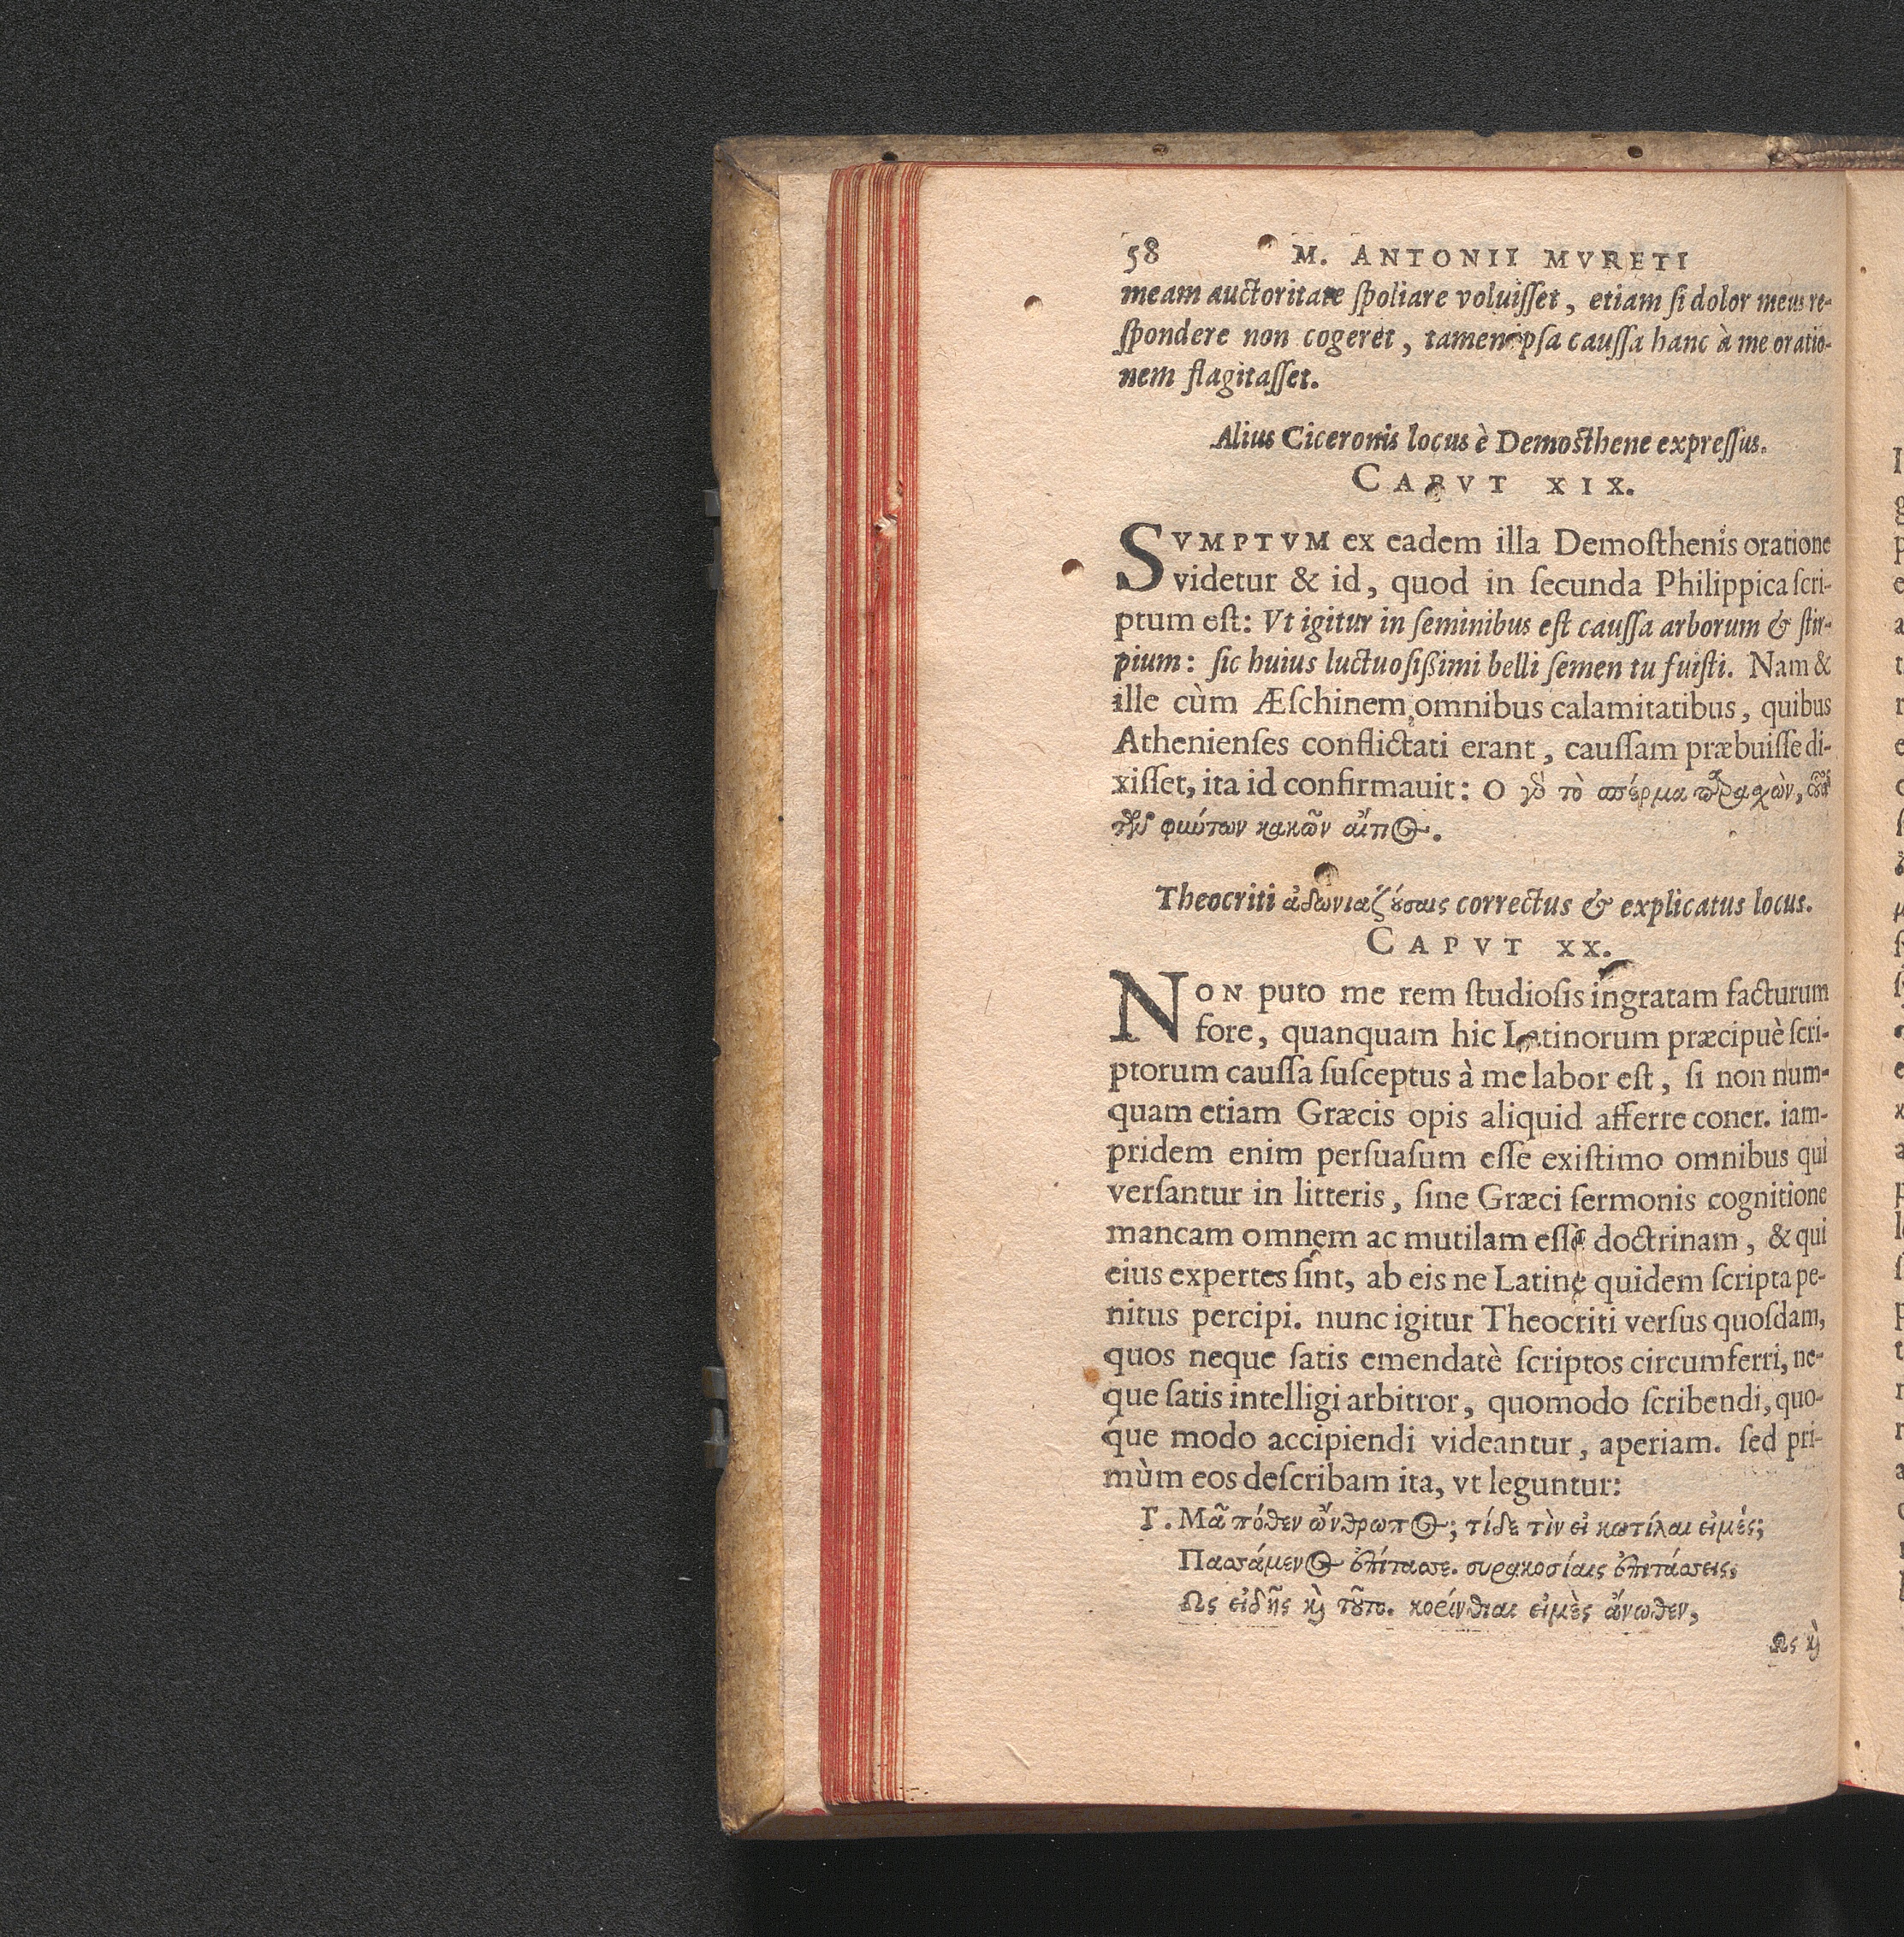 58 M. ANTONII MVRETI
meam auctoritate ſpoliare voluiſſet, etiam ſi dolor meus re-
ſpondere non cogeret, tamen ipſa cauſſa hanc à me oratio-
nem flagitaſſet.
Alius Ciceronis locus è Demoſthene expreſſus.
CAPVT XIX.
SVMPTVM ex eadem illa Demoſthenis oratione
videtur & id, quod in ſecunda Philippica ſcri-
ptum eſt: Vt igitur in ſeminibus eſt cauſſa arborum & ſtir-
pium: ſic huius luctuoſißimi belli ſemen tu fuiſti. Nam &
ille cùm Æſchinem omnibus calamitatibus, quibus
Athenienſes conflictati erant, cauſſam præbuiſſe di-
xiſſet, ita id confirmauit: Ο γὸ τὸ σπέρμα παραχὼν, οὗτος
τῶν φύντων κακῶν αἴτιος.
Theocriti ἀδωνιαζούσαις correctus & explicatus locus.
CAPVT XX.
NON puto me rem ſtudioſis ingratam facturum
fore, quanquam hic Latinorum præcipuè ſcri-
ptorum cauſſa ſuſceptus à me labor eſt, ſi non num-
quam etiam Græcis opis aliquid afferre coner. iam-
pridem enim perſuaſum eſſe exiſtimo omnibus qui
verſantur in litteris, ſine Græci ſermonis cognitione
mancam omnem ac mutilam eſſe doctrinam, & qui
eius expertes ſint, ab eis ne Latine quidem ſcripta pe-
nitus percipi. nunc igitur Theocriti verſus quoſdam,
quos neque ſatis emendatè ſcriptos circumferri, ne-
que ſatis intelligi arbitror, quomodo ſcribendi, quo-
que modo accipiendi videantur, aperiam. ſed pri-
mùm eos deſcribam ita, vt leguntur:
Γ. Μᾶ πόθεν ὤνθρωπος; τί δὲ τὶν εἰ κωτίλαι εἰμές;
Πασάμενος ἐπίτασσε. συρακοσίαις ἐπιτάσσεις;
Ως εἰδῇς καὶ τοῦτο. κορίνθιαι εἰμὲς ἄνωθεν,
Ως καὶ